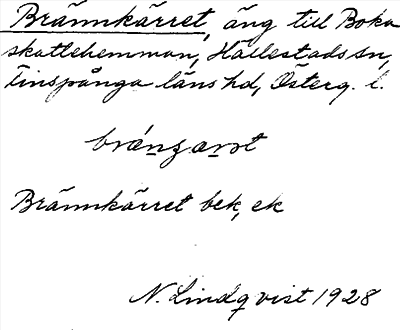 Brännkärret, äng till Boka
skattehemman, Hällestads sn,
Finspånga läns hd, Österg. l.
bránʒarət
Brännkärret bek, ek
N. Lindqvist 1928